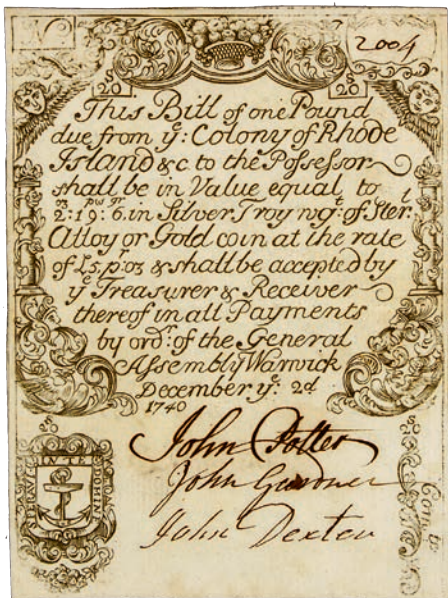 2004
S 20 S 20
This Bill of one Pound
due from yᵉ: Colony of Rhode
Island &c to the Possessor
shall be in Value equal to
oz pw gr
2:19:6. in Silver Troy wgᵗ: of Sterˡ
Alloy or Gold coin at the rate
of £5, pʳ: oz & shall be accepted by
yᵉ Treasurer & Receiver
thereof in all Payments
by ordʳ: of the General
Assembly Warwick
December yᵉ: 2d
1740
John Potter
John Gardner
John Dexter